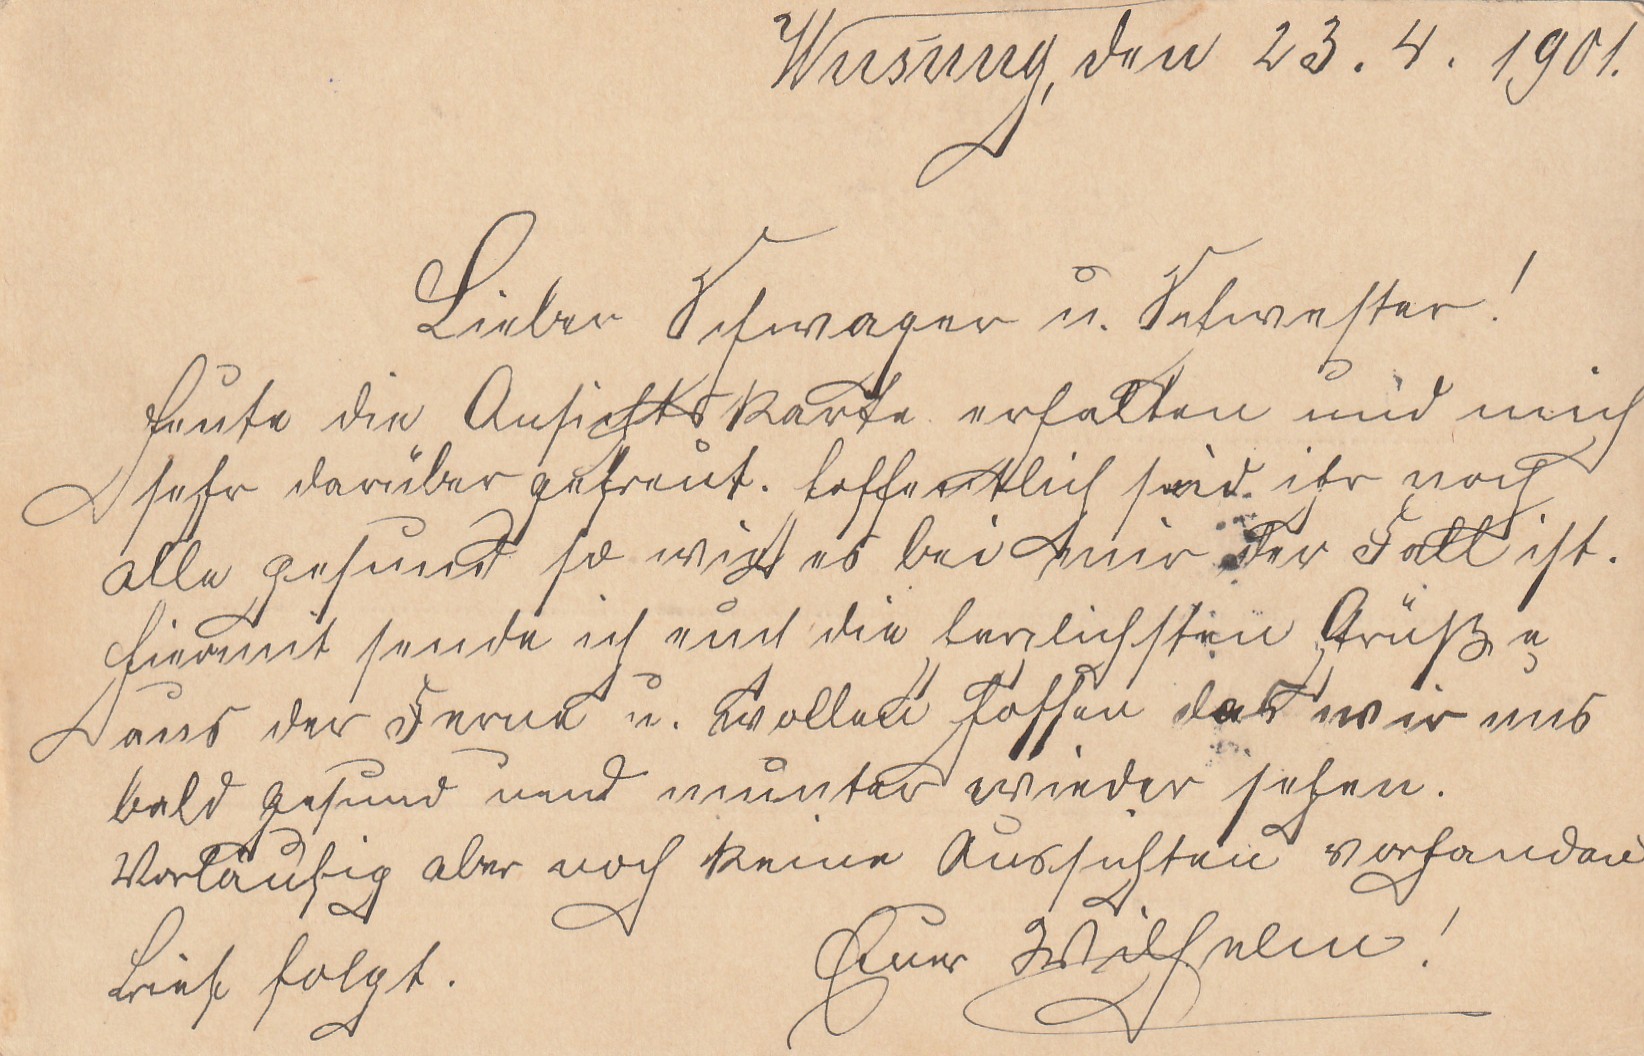 Wusung, den 23. 4. 1901.
Lieber Schwager u. Schwester!
Heute die Ansichtskarte erhalten und mich
sehr darüber gefreut. Hoffentlich seid ihr noch
alle gesund so wie es bei mir der Fall ist.
Hiermit sende ich euch die herzlichsten Grüße
aus der Ferne u. wollen hoffen das wir uns
bald gesund und munter wieder sehen.
Vorläufig aber noch keine Aussichten vorhanden
Brief folgt. Euer Wilhelm!